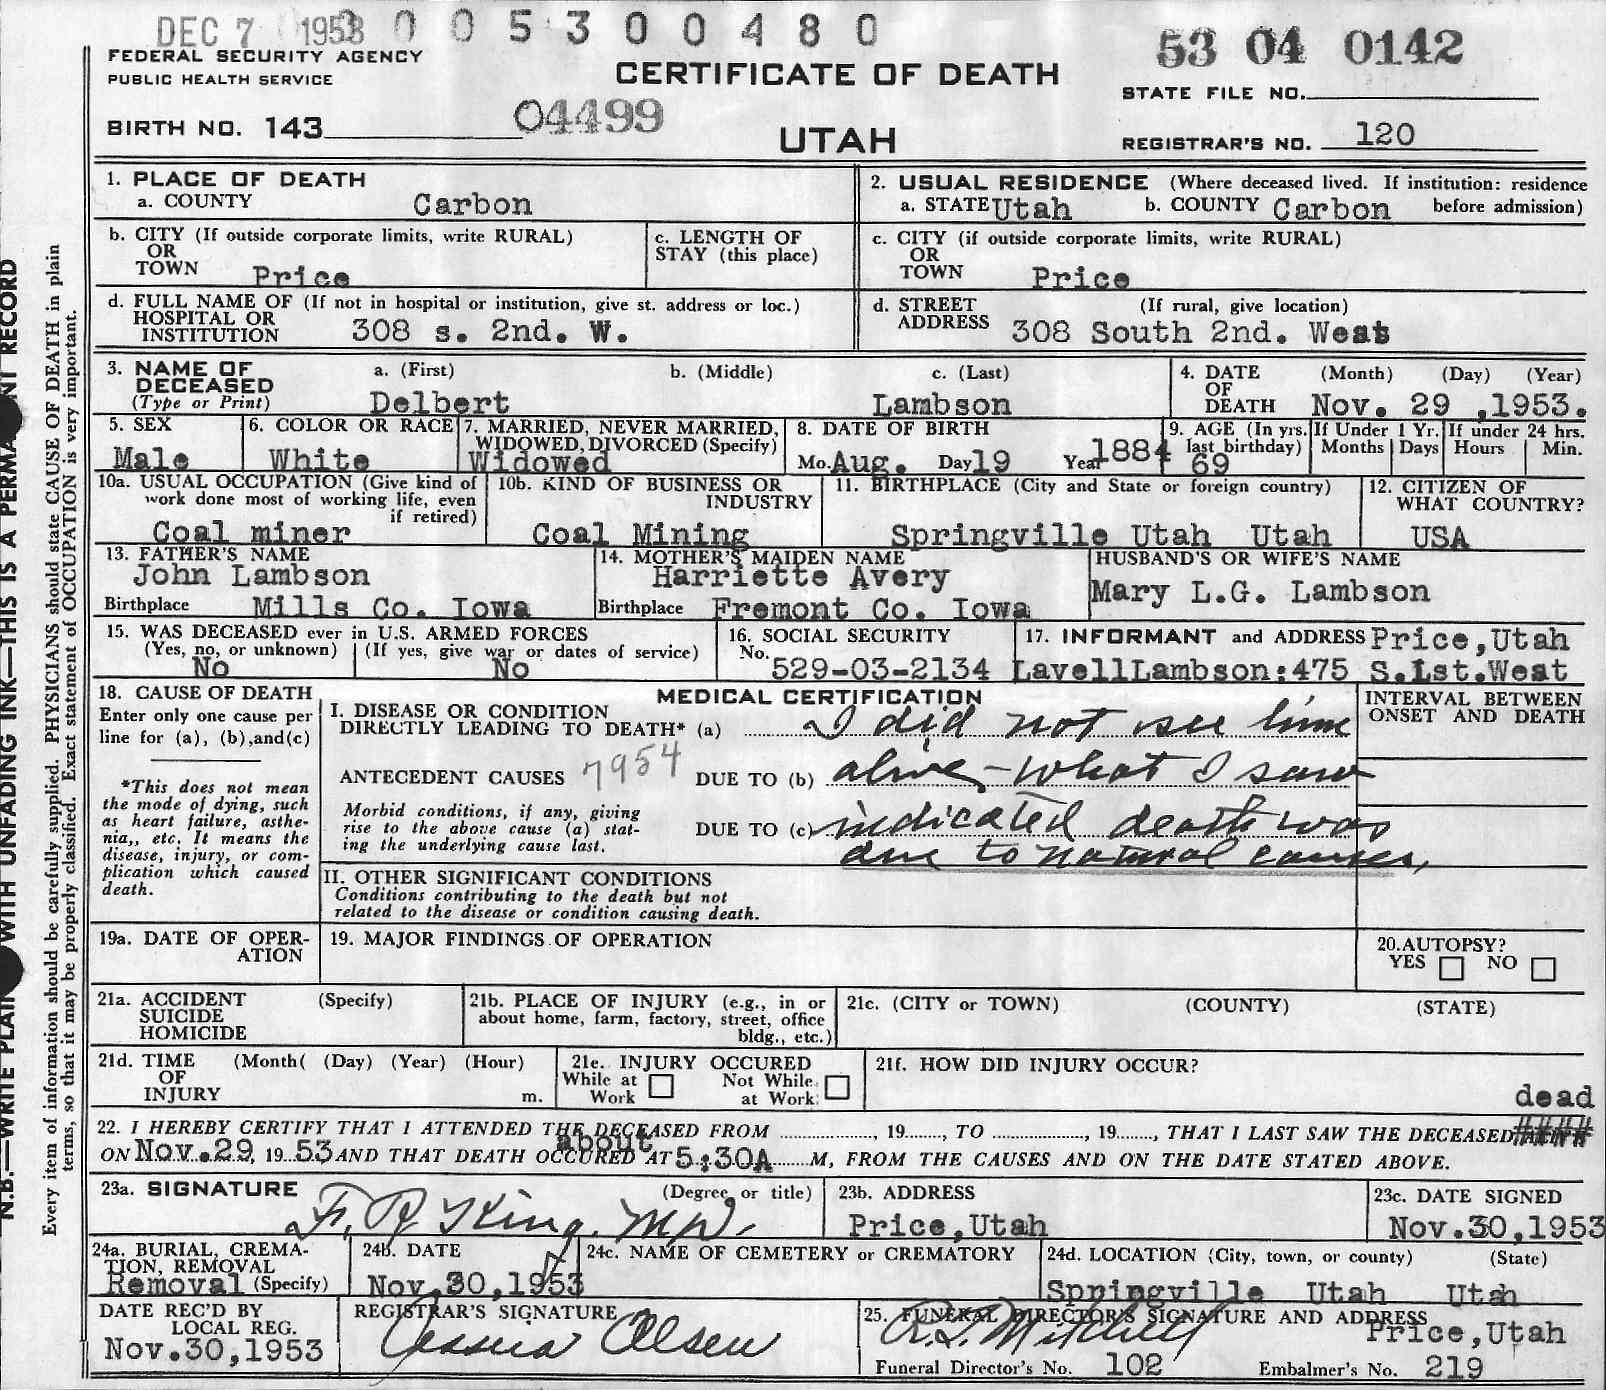 DEC 7 1953 0 0 5 3 0 0 4 8 0
53 04 0142
FEDERAL SECURITY AGENCY
PUBLIC HEALTH SERVICE
CERTIFICATE OF DEATH
STATE FILE NO.
BIRTH NO. 143
04499
UTAH
REGISTRAR'S NO. 120
1. PLACE OF DEATH
a. COUNTY Carbon
2. USUAL RESIDENCE (Where deceased lived. If institution: residence
a. STATE Utah b. COUNTY Carbon before admission)
b. CITY (If outside corporate limits, write RURAL)
OR
TOWN Price
c. LENGTH OF
STAY (this place)
c. CITY (if outside corporate limits, write RURAL)
OR
TOWN Price
d. FULL NAME OF (If not in hospital or institution, give st. address or loc.)
HOSPITAL OR
INSTITUTION 308 s. 2nd. W.
d. STREET (If rural, give location)
ADDRESS 308 South 2nd. West
3. NAME OF a. (First) b. (Middle) c. (Last)
DECEASED
(Type or Print) Delbert Lambson
4. DATE (Month) (Day) (Year)
OF
DEATH Nov. 29 ,1953.
5. SEX
Male
6. COLOR OR RACE
White
7. MARRIED, NEVER MARRIED,
WIDOWED, DIVORCED (Specify)
Widowed
8. DATE OF BIRTH
Mo. Aug. Day 19 Year 1884
9. AGE (In yrs.
last birthday)
69
If Under 1 Yr.
Months Days
If under 24 hrs.
Hours Min.
10a. USUAL OCCUPATION (Give kind of
work done most of working life, even
if retired)
Coal miner
10b. KIND OF BUSINESS OR
INDUSTRY
Coal Mining
11. BIRTHPLACE (City and State or foreign country)
Springville Utah Utah
12. CITIZEN OF
WHAT COUNTRY?
USA
13. FATHER'S NAME
John Lambson
Birthplace Mills Co. Iowa
14. MOTHER'S MAIDEN NAME
Harriette Avery
Birthplace Fremont Co. Iowa
HUSBAND'S OR WIFE'S NAME
Mary L.G. Lambson
15. WAS DECEASED ever in U.S. ARMED FORCES
(Yes, no, or unknown) (If yes, give war or dates of service)
No No
16. SOCIAL SECURITY
No.
529-03-2134
17. INFORMANT and ADDRESS Price,Utah
LavellLambson:475 S.1st.West
18. CAUSE OF DEATH
Enter only one cause per
line for (a), (b),and(c)
*This does not mean
the mode of dying, such
as heart failure, asthe-
nia,, etc. It means the
disease, injury, or com-
plication which caused
death.
MEDICAL CERTIFICATION
I. DISEASE OR CONDITION
DIRECTLY LEADING TO DEATH* (a) I did not see him
ANTECEDENT CAUSES 7954 DUE TO (b) alive - what I saw
Morbid conditions, if any, giving
rise to the above cause (a) stat-
ing the underlying cause last.
DUE TO (c) indicated death was
due to natural causes,
INTERVAL BETWEEN
ONSET AND DEATH
II. OTHER SIGNIFICANT CONDITIONS
Conditions contributing to the death but not
related to the disease or condition causing death.
19a. DATE OF OPER-
ATION
19. MAJOR FINDINGS OF OPERATION
20.AUTOPSY?
YES NO
21a. ACCIDENT (Specify)
SUICIDE
HOMICIDE
21b. PLACE OF INJURY (e.g., in or
about home, farm, factory, street, office
bldg., etc.)
21c. (CITY or TOWN) (COUNTY) (STATE)
21d. TIME (Month( (Day) (Year) (Hour)
OF
INJURY m.
21e. INJURY OCCURED
While at Not While
Work at Work
21f. HOW DID INJURY OCCUR?
dead
22. I HEREBY CERTIFY THAT I ATTENDED THE DECEASED FROM ............, 19......., TO ............, 19......., THAT I LAST SAW THE DECEASED ####
about
ON Nov.29, 19 53 AND THAT DEATH OCCURED AT 5:30A M, FROM THE CAUSES AND ON THE DATE STATED ABOVE.
23a. SIGNATURE (Degree or title)
F. R. King. M.D.
23b. ADDRESS
Price,Utah
23c. DATE SIGNED
Nov.30,1953
24a. BURIAL, CREMA-
TION, REMOVAL
Removal (Specify)
24b. DATE
Nov.30,1953
24c. NAME OF CEMETERY or CREMATORY
24d. LOCATION (City, town, or county) (State)
Springville Utah Utah
DATE REC'D BY
LOCAL REG.
Nov.30,1953
REGISTRAR'S SIGNATURE
Olsen
25. FUNERAL DIRECTOR'S SIGNATURE AND ADDRESS
R. L. Mitchell Price,Utah
Funeral Director's No. 102 Embalmer's No. 219
N.B.—WRITE PLAI WITH UNFADING INK—THIS IS A PERMA NT RECORD
Every item of information should be carefully supplied. PHYSICIANS should state CAUSE OF DEATH in plain
terms, so that it may be properly classified. Exact statement of OCCUPATION is very important.